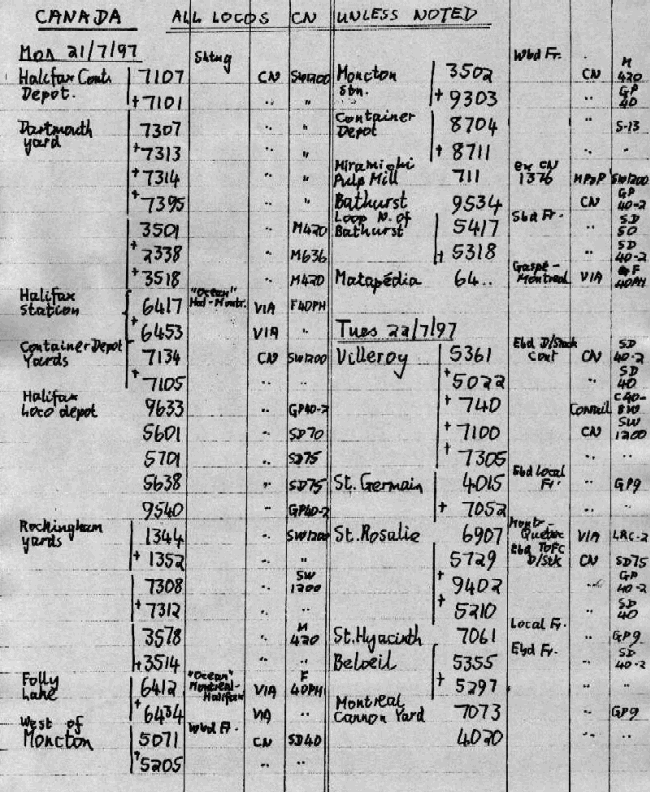 CANADA ALL LOCOS CN UNLESS NOTED
Mon 21/7/97
Halifax Contr. Depot. 7107 Shtng CN SW1200
+7101 .. "
Dartmouth yard 7307 .. "
+7313 .. "
+7314 .. "
+7395 .. "
3501 .. M420
+2338 .. M636
+3518 .. M420
Halifax Station 6417 "Ocean" Hal-Montr. VIA F40PH
+6453 VIA "
Container Depot Yards 7134 CN SW1200
+7105 .. "
Halifax Loco depot 9633 .. GP40-2
5601 .. SD70
5701 .. SD75
5638 .. SD75
9540 .. GP40-2
Rockingham yards 1344 .. SW1200
+1352 .. "
7308 .. SW 1200
+7312 .. ..
3578 .. M 420
+3514 .. ..
Folly Lake 6412 "Ocean" Montreal-Halifax VIA F 40PH
+6434 VIA ..
West of Moncton 5071 Wbd Fr. CN SD40
+5205 .. ..
Moncton Stn. 3502 Wbd Fr. CN M 420
+9303 .. GP 40
Container Depot 8704 S-13
+8711 ..
Miramichi Pulp Mill 711 ex CN 1376 MP&P SW1200
Bathurst 9534 CN GP 40-2
Loop N. of Bathurst 5417 Sbd Fr. .. SD 50
+5318 .. SD 40-2
Matapédia 64.. Gaspé-Montreal VIA F 40PH
Tues 22/7/97
Villeroy 5361 Ebd D/Stack Cont CN SD 40-2
+5022 .. SD 40
+740 Conrail C40-8W
+7100 CN SW 1200
+7305 .. ..
St. Germain 4015 Ebd Local Fr. .. GP9
+7052 .. ..
St. Rosalie 6907 Montr-Quebec VIA LRC-2
5729 Ebd TOFC D/Stk CN SD75
+9402 .. GP 40-2
+5210 .. SD 40
St. Hyacinth 7061 Local Fr. .. GP9
Beloeil 5355 Ebd Fr. .. SD 40-2
+5297 .. ..
Montreal Cannon Yard 7073 .. GP9
4020 .. ..